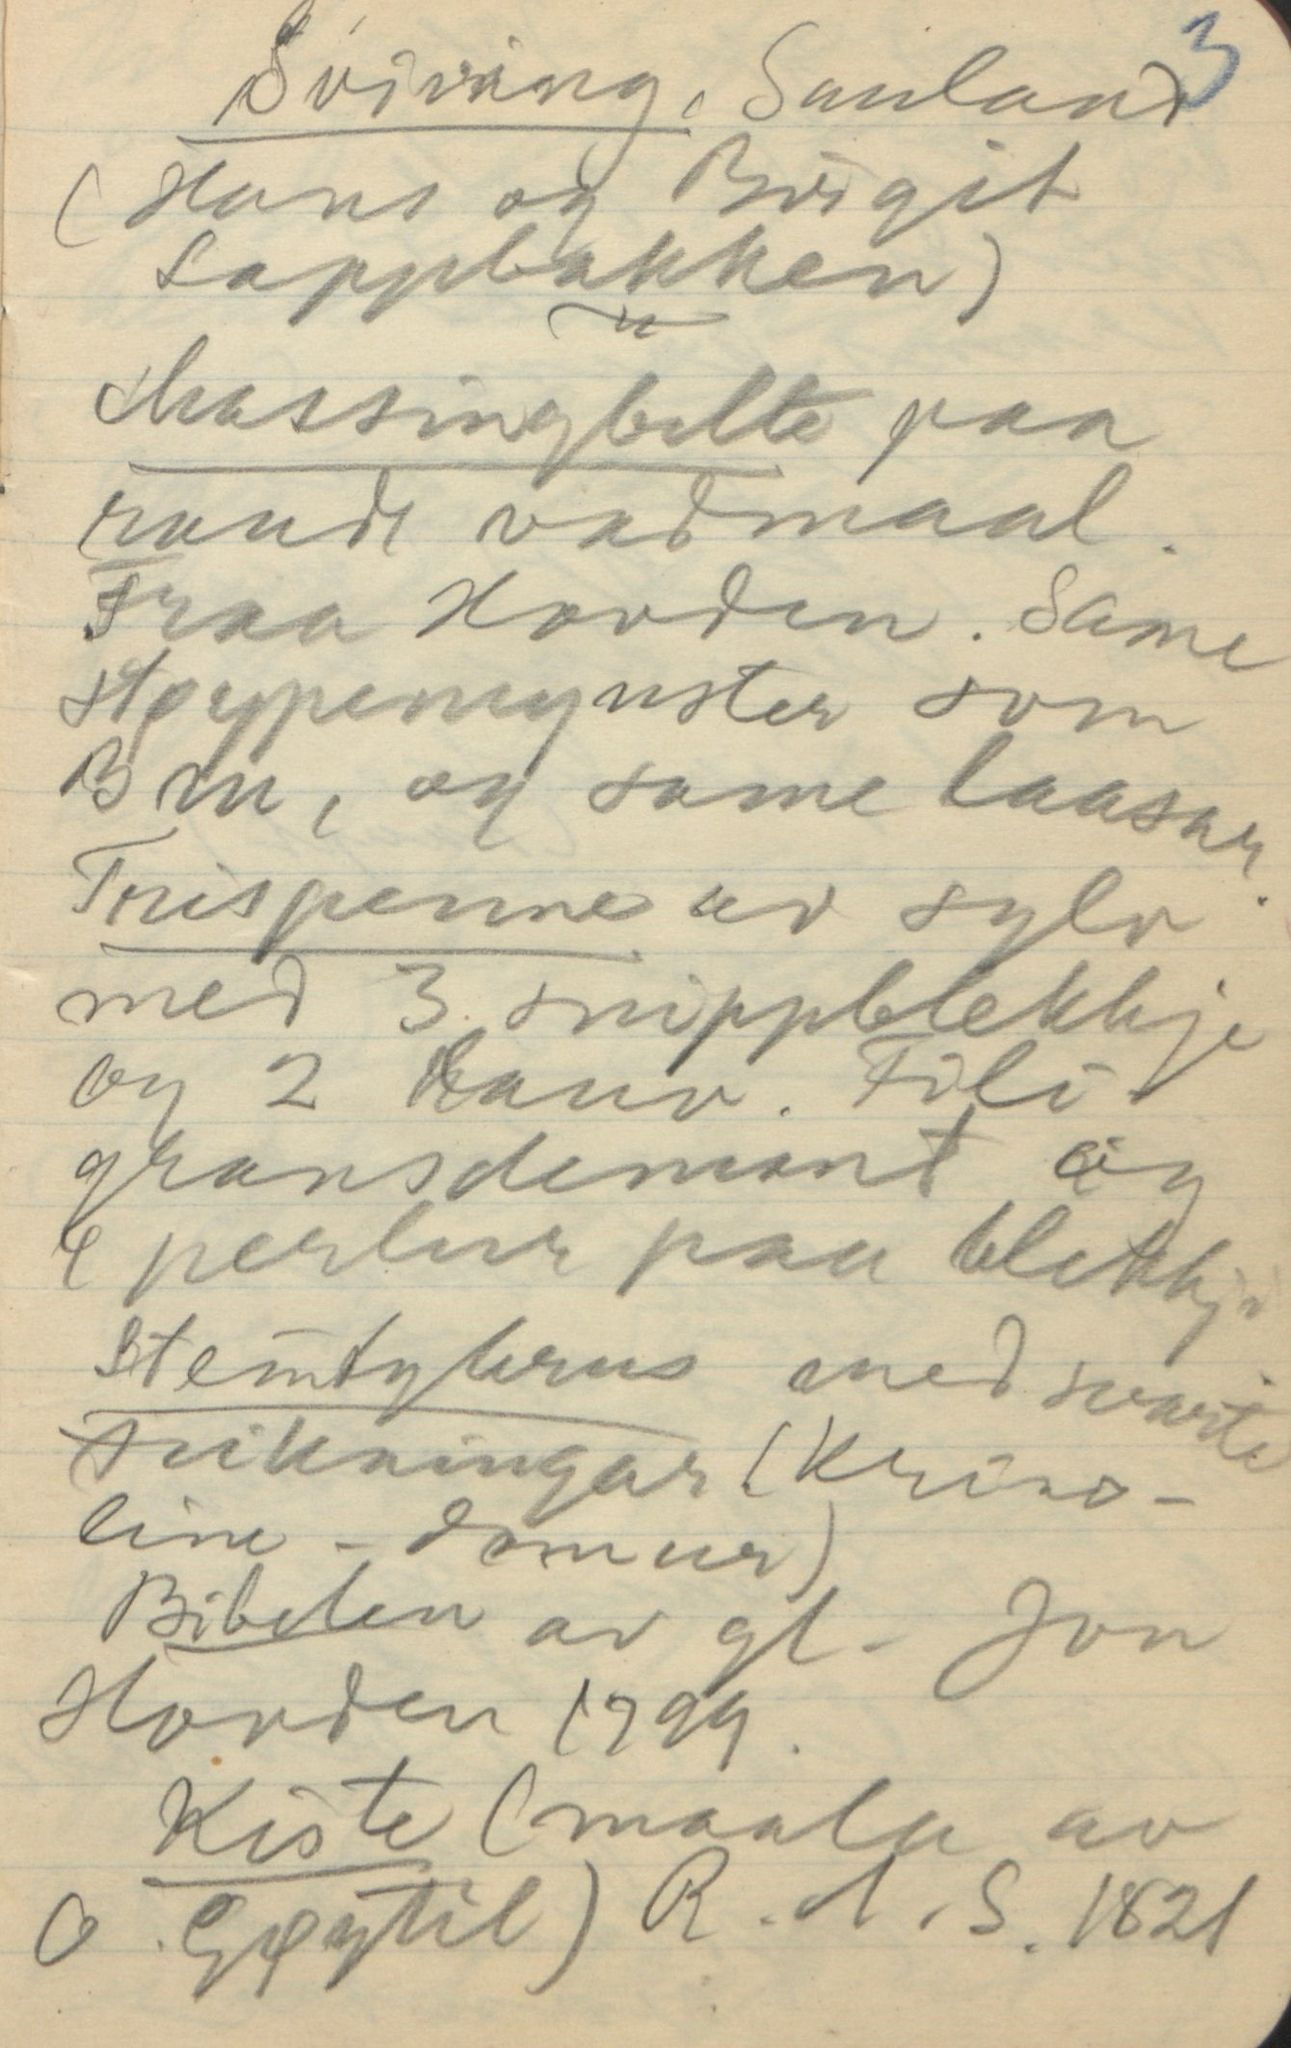 3
Sviring, Sauland
(Hans og Birgit
Lappbakken)
Massingbelte paa
raudt vadmaal.
Fraa Hovden. Same
støypemynster som
Bru, og same laasar.
Trispenne av sylv
med 3 snippblekkje
og 2 lauv. Fili-
gransdemant og
4 perlur paa blekkje
Steintykrus med svarte
rikningar (Krino-
line-damur)
Bibelen av gl. Jon
Hovden 1799.
Kiste (maala av
O. Gøytil) R. A. S. 1821